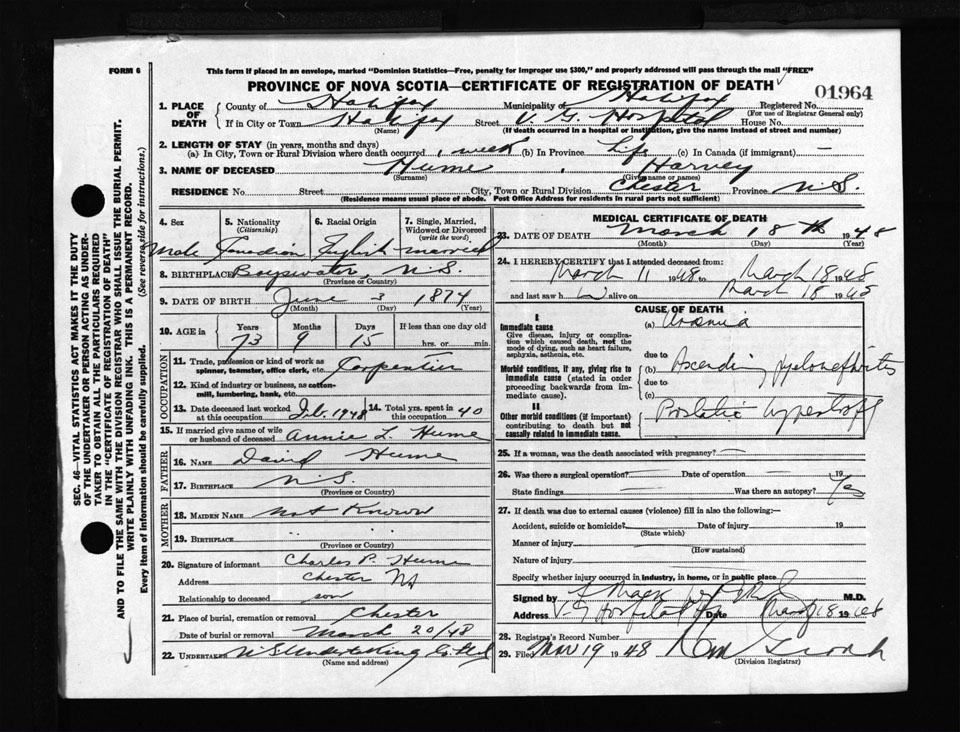 FORM 6
This form if placed in an envelope, marked "Dominion Statistics—Free, penalty for improper use $300," and properly addressed will pass through the mail "FREE"
PROVINCE OF NOVA SCOTIA—CERTIFICATE OF REGISTRATION OF DEATH
01964
1. PLACE OF DEATH County of Halifax Municipality of Halifax Registered No.
(For use of Registrar General only)
If in City or Town Halifax Street V. G. Hospital House No.
(Name) (If death occurred in a hospital or institution, give the name instead of street and number)
2. LENGTH OF STAY (in years, months and days)
(a) In City, Town or Rural Division where death occurred 1 week (b) In Province Life (c) In Canada (if immigrant) —
3. NAME OF DECEASED Hume, Harvey
(Surname) (Given name or names)
RESIDENCE No. Street City, Town or Rural Division Chester Province N.S.
(Residence means usual place of abode. Post Office Address for residents in rural parts not sufficient)
4. Sex 5. Nationality (Citizenship) 6. Racial Origin 7. Single, Married, Widowed or Divorced (write the word)
Male Canadian English married
8. BIRTHPLACE Bayswater, N.S.
(Province or Country)
9. DATE OF BIRTH June 3 1874
(Month) (Day) (Year)
10. AGE in Years Months Days If less than one day old
73 9 15 hrs. or min.
OCCUPATION
11. Trade, profession or kind of work as spinner, teamster, office clerk, etc. Carpenter
12. Kind of industry or business, as cotton-mill, lumbering, bank, etc.
13. Date deceased last worked at this occupation Feb. 1948 14. Total yrs. spent in this occupation 40
15. If married give name of wife or husband of deceased Annie L. Hume
FATHER
16. NAME David Hume
17. BIRTHPLACE N.S.
(Province or Country)
MOTHER
18. MAIDEN NAME Not Known
19. BIRTHPLACE
(Province or Country)
20. Signature of informant Charles P. Hume
Address Chester NS
Relationship to deceased son
21. Place of burial, cremation or removal Chester
Date of burial or removal March 20/48
22. UNDERTAKER N S Undertaking Co. Ltd
(Name and address)
MEDICAL CERTIFICATE OF DEATH
23. DATE OF DEATH March 18th 1948
(Month) (Day) (Year)
24. I HEREBY CERTIFY that I attended deceased from:
March 11 1948 to March 18 1948
and last saw h alive on March 18 1948
CAUSE OF DEATH
I
Immediate cause (a) Uraemia
Give disease, injury or complication which caused death, not the mode of dying, such as heart failure, asphyxia, asthenia, etc.
due to
Morbid conditions, if any, giving rise to immediate cause (stated in order proceeding backwards from immediate cause).
(b) Ascending Pyelonephritis
due to
(c)
II
Other morbid conditions (if important) contributing to death but not causally related to immediate cause.
Prostatic hypertrophy
25. If a woman, was the death associated with pregnancy? —
26. Was there a surgical operation? — Date of operation — 19
State findings — Was there an autopsy? Yes
27. If death was due to external causes (violence) fill in also the following:—
Accident, suicide or homicide? Date of injury 19
(State which)
Manner of injury
(How sustained)
Nature of injury
Specify whether injury occurred in industry, in home, or in public place
Signed by M.D.
Address V. G. Hospital Date March 18 1948
28. Registrar's Record Number
29. Filed Mar 19 1948
(Division Registrar)
SEC. 46—VITAL STATISTICS ACT MAKES IT THE DUTY
OF THE UNDERTAKER OR PERSON ACTING AS UNDER-
TAKER TO OBTAIN ALL THE PARTICULARS REQUIRED
IN THE "CERTIFICATE OF REGISTRATION OF DEATH"
AND TO FILE THE SAME WITH THE DIVISION REGISTRAR WHO SHALL ISSUE THE BURIAL PERMIT.
WRITE PLAINLY WITH UNFADING INK. THIS IS A PERMANENT RECORD.
Every item of information should be carefully supplied. (See reverse side for instructions.)